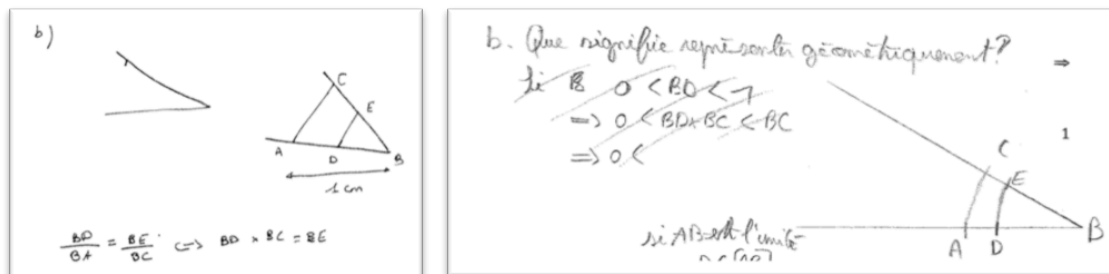 b)
C
E
A
D
B
1 cm
BD/BA = BE/BC <=> BD × BC = BE
b. Que signifie représenter géométriquement?
⇒
Si B 0 < BD < 1
=> 0 < BD × BC < BC
=> 0 <
1
C
E
B
si AB est l'unité
A
D